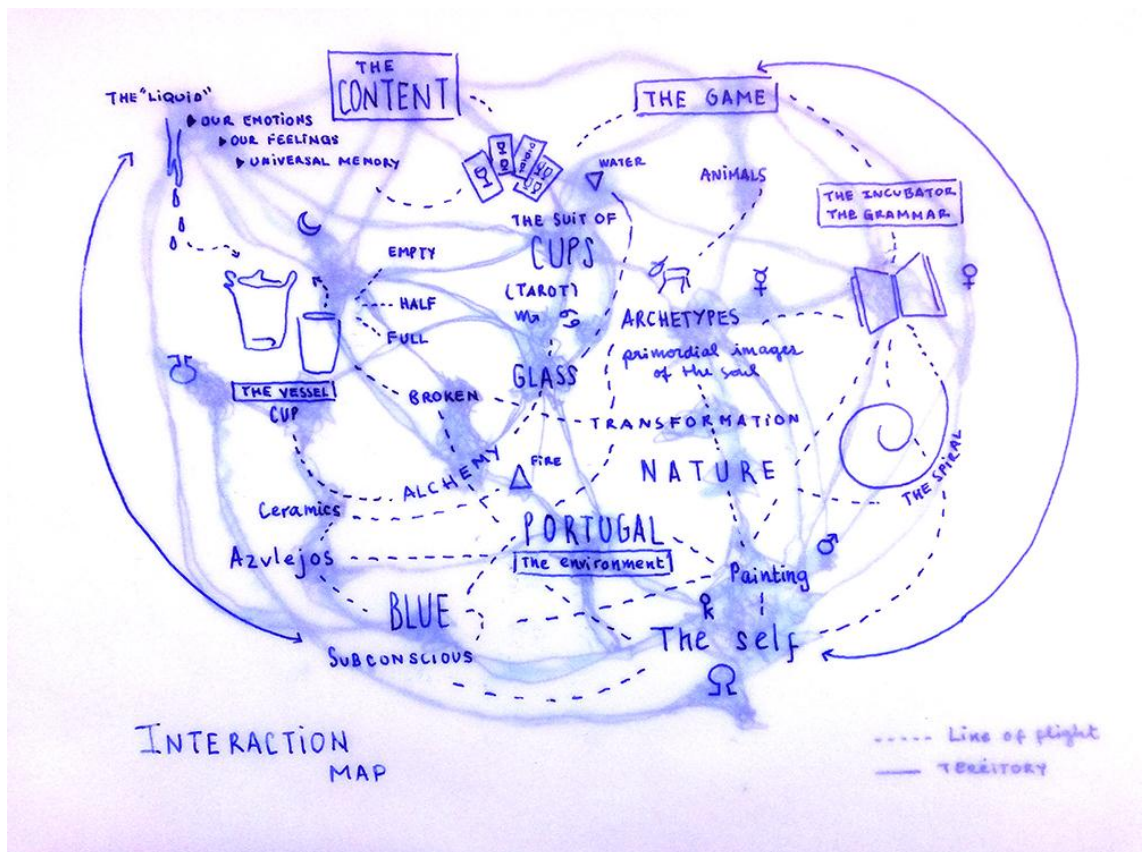 THE
CONTENT
THE "LIQUID"
OUR EMOTIONS
OUR FEELINGS
UNIVERSAL MEMORY
THE GAME
WATER
ANIMALS
THE INCUBATOR
THE GRAMMAR
THE SUIT OF
CUPS
(TAROT)
EMPTY
HALF
FULL
ARCHETYPES
primordial images
of the soul
GLASS
THE VESSEL
CUP
BROKEN
TRANSFORMATION
ALCHEMY
FIRE
NATURE
THE SPIRAL
Ceramics
PORTUGAL
The environment
Azulejos
Painting
BLUE
The self
SUBCONSCIOUS
INTERACTION
MAP
Line of flight
TERRITORY